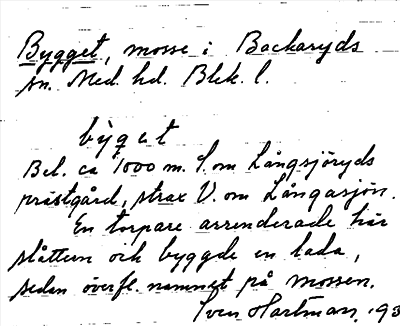 Bygget, mosse i Backaryds
sn. Med. hd. Blek. l.
bỳget
Bel. ca 1000 m. S. om Långsjöryds
prästgård, strax V. om Långasjön.
En torpare arrenderade här
slåttern och byggde en lada,
sedan överfl. namnet på mossen.
Sven Hartman, 193